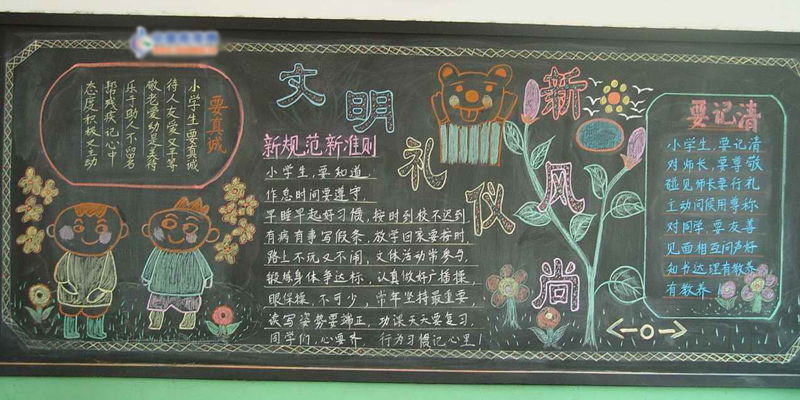 要真诚
小学生,要真诚
待人友爱又平等
敬老爱幼是美德
乐于助人不留名
帮残疾记心中
态度积极又主动
文明礼仪新风尚
新规范新准则
小学生,要知道,
作息时间要遵守,
早睡早起好习惯,按时到校不迟到,
有病有事写假条,放学回家要按时,
路上不玩又不闹,文体活动常参与,
锻练身体争达标,认真做好广播操,
眼保操,不可少,常年坚持最重要,
读写姿势要端正,功课天天要复习,
同学们,心要齐 行为习惯记心里!
要记清
小学生,要记清
对师长,要尊敬
碰见师长要行礼
主动问候用尊称
对同学,要友善
见面相互问声好
知书达理有教养
有教养